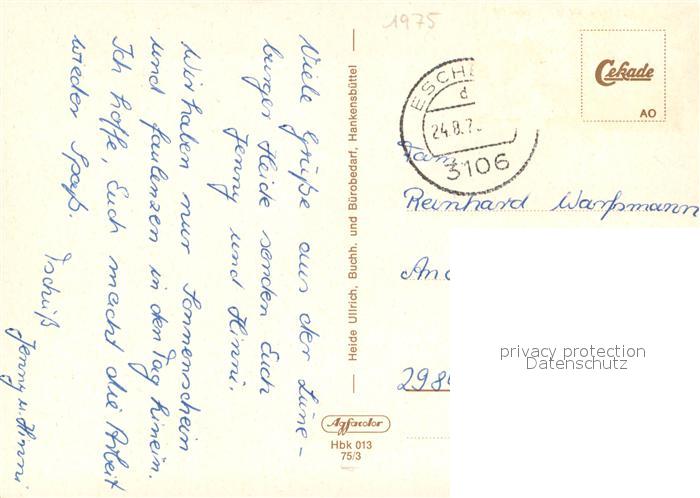 1975
Viele Grüße aus der Lüne-
burger Heide senden Euch
Jenny und Hinni.
Wir haben nur Sonnenschein
und faulenzen in den Tag hinein.
Ich hoffe, Euch macht die Arbeit
wieder Spaß.
Tschüß
Jenny u. Hinni
Heide Ullrich, Buchh. und Bürobedarf, Hankensbüttel
Agfacolor
Hbk 013
75/3
Cekade
AO
ESCHE
d
24.8.7
3106
Fam.
Reinhard Warfsmann
An
298
privacy protection
Datenschutz